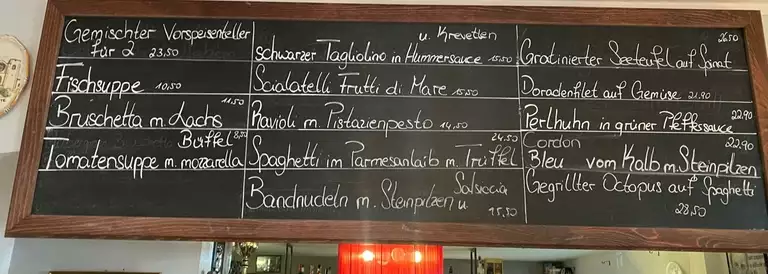 Gemischter Vorspeisenteller
für 2 23,50
Fischsuppe 10,50
11,50
Bruschetta m. Lachs
Büffel 8,50
Tomatensuppe m. mozzarella
u. Krevetten
schwarzer Tagliolino in Hummersauce 15,50
Scialatelli Frutti di Mare 15,50
Ravioli m. Pistazienpesto 14,50
24,50
Spaghetti im Parmesanlaib m. Trüffel
Salsiccia
Bandnudeln m. Steinpilzen u
15,50
26,50
Gratinierter Seeteufel auf Spinat
Doradenfilet auf Gemüse 21,90
22,90
Perlhuhn in grüner Pfeffersauce
Cordon 22,90
Bleu vom Kalb m. Steinpilzen
Gegrillter Octopus auf Spaghetti
28,50